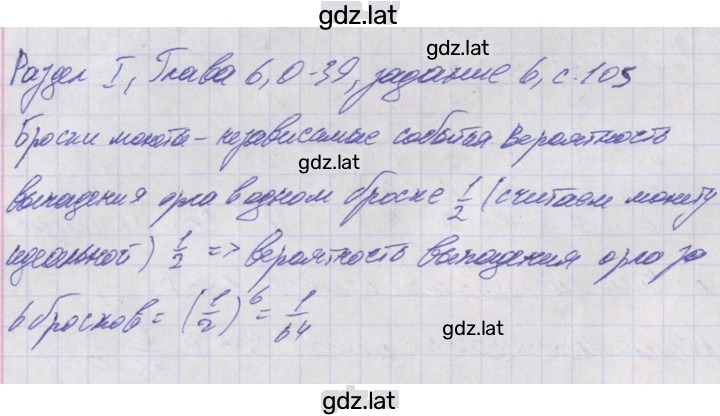 gdz.lat
Раздел I, Глава 6, О-39, задание 6, с.105
gdz.lat
Броски монеты - независимые события Вероятность
gdz.lat
выпадения орла в одном броске 1/2 (считаем монету
идеальной) 1/2 => вероятность выпадения орла за
6 бросков = (1/2)^6 = 1/64
gdz.lat
gdz.lat